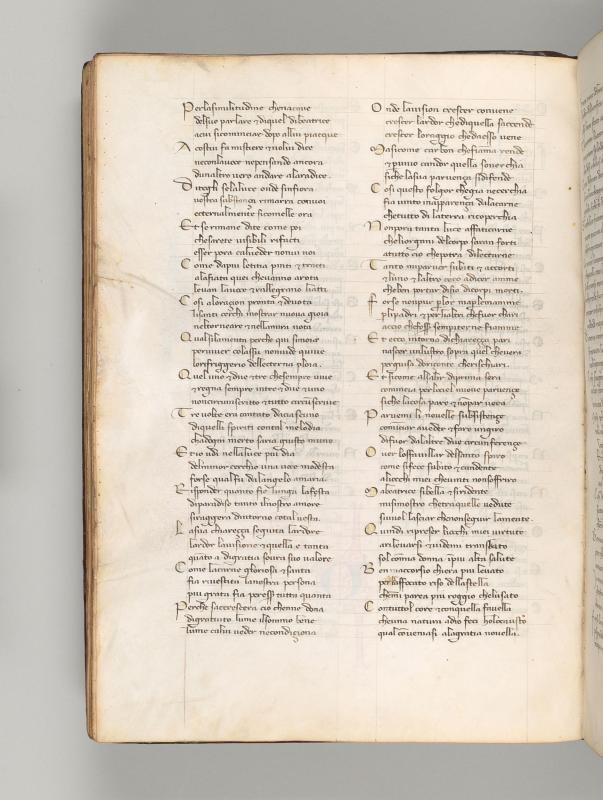 Perlasimilitudine chenacque
delsuo parlare & diquel dibeatrice
acui sicominciar dopo allui piacque
A costui fa mistiere & noluui dice
neconlauoce nepensando ancora
dunaltro uero andare alaradice
Ditegli selaluce onde sinfiora
uostra substança rimarra conuoi
ecternalmente sicomelle ora
Et serimane dite come poi
chesarete uisibili rifacti
esser pora calueder nonui noi
Come dapiu letitia pinti & tracti
alafiata quei cheuanno arota
leuan lauoce & rallegrano liatti
Cosi aloration pronta & diuota
lisanti cerchi mostrar nuoua gioia
neltorneare & nellamira nota
Qual silamenta perche qui simoia
perniuer colassu nonuide quiue
lorefriggero delleterna ploia
Quel uno & due & tre chesempre uiue
& regna sempre intre & due & uno
noncircunscritto & tutto circunscriue
Tre uolte era cantato daciascuno
diquelli spiriti contal melodia
chadogni merto saria giusto muno
Et io udi nellaluce piu dia
delminor cerchio una uoce modesta
forse qual fu dalangelo amaria
Risponder quanto fie lunga lafesta
diparadiso tanto ilnostro amore
siraggera dintorno cotal uesta
Lasua chiareça seguita lardore
lardor lauisione & quella e tanta
quāto a digratia soura suo ualore
Come lacarne gloriosa & santa
fia riuestita lanostra persona
piu grata fia peresser tutta quanta
Perche saccrescera cio chenne dona
digratuito lume ilsommo bene
lume calui ueder necondiçiona
Onde lauision crescer conuene
crescer lardor chediquella saccende
crescer loraggio chedaesso uene
Masicome carbon chefiama rende
& pcruiuo candor quella souerchia
siche lasua paruença sidifende
Cosi questo folgor chegia necerchia
fia uinto inapparença dalacarne
chetutto di laterra ricoperchia
Nonpora tanta luce affaticarne
cheliorgani delcorpo saran forti
atutto cio chepotra dilectarne
Tanto mparuer subiti & accorti
& luno & laltro coro adicer amme
cheben portar disio dicorpi morti
Forse nonpur plor maplemamme
plipadri & perlialtri chefuor chari
ançi chefosser sempiterne fiamme
Et ecco intorno dichiareça pari
nascer unlustro sopra quel cheuera
perguisa dorizonte cherischiari
Et sicome alsalir diprima sera
comincia perlociel nuoue paruençe
siche lacosa pare & nōpar uera
Paruemi li nouelle subsistençe
cominciar aueder & fare ungiro
difuor dalaltre due circunferençe
O uer loffauillar delsanto spiro
come sifece subito & candente
aliocchi miei cheuinti nonsoffriro
Mabeatrice sibella & ridente
mi simostro chetraquelle uedute
siuuol lasciar chenonseguir lamente
Quindi ripreser liocchi miei uirtute
arileuarsi & uidemi translato
sol conmia donna inpiu alta salute
Ben maccorsio chiera piu leuato
per laffocato riso dellastella
chemi parea piu roggio chelusato
Contuttol core & conquella fauella
cheuna natutti adio feci holocausto
qual conueniasi alagratia nouella.